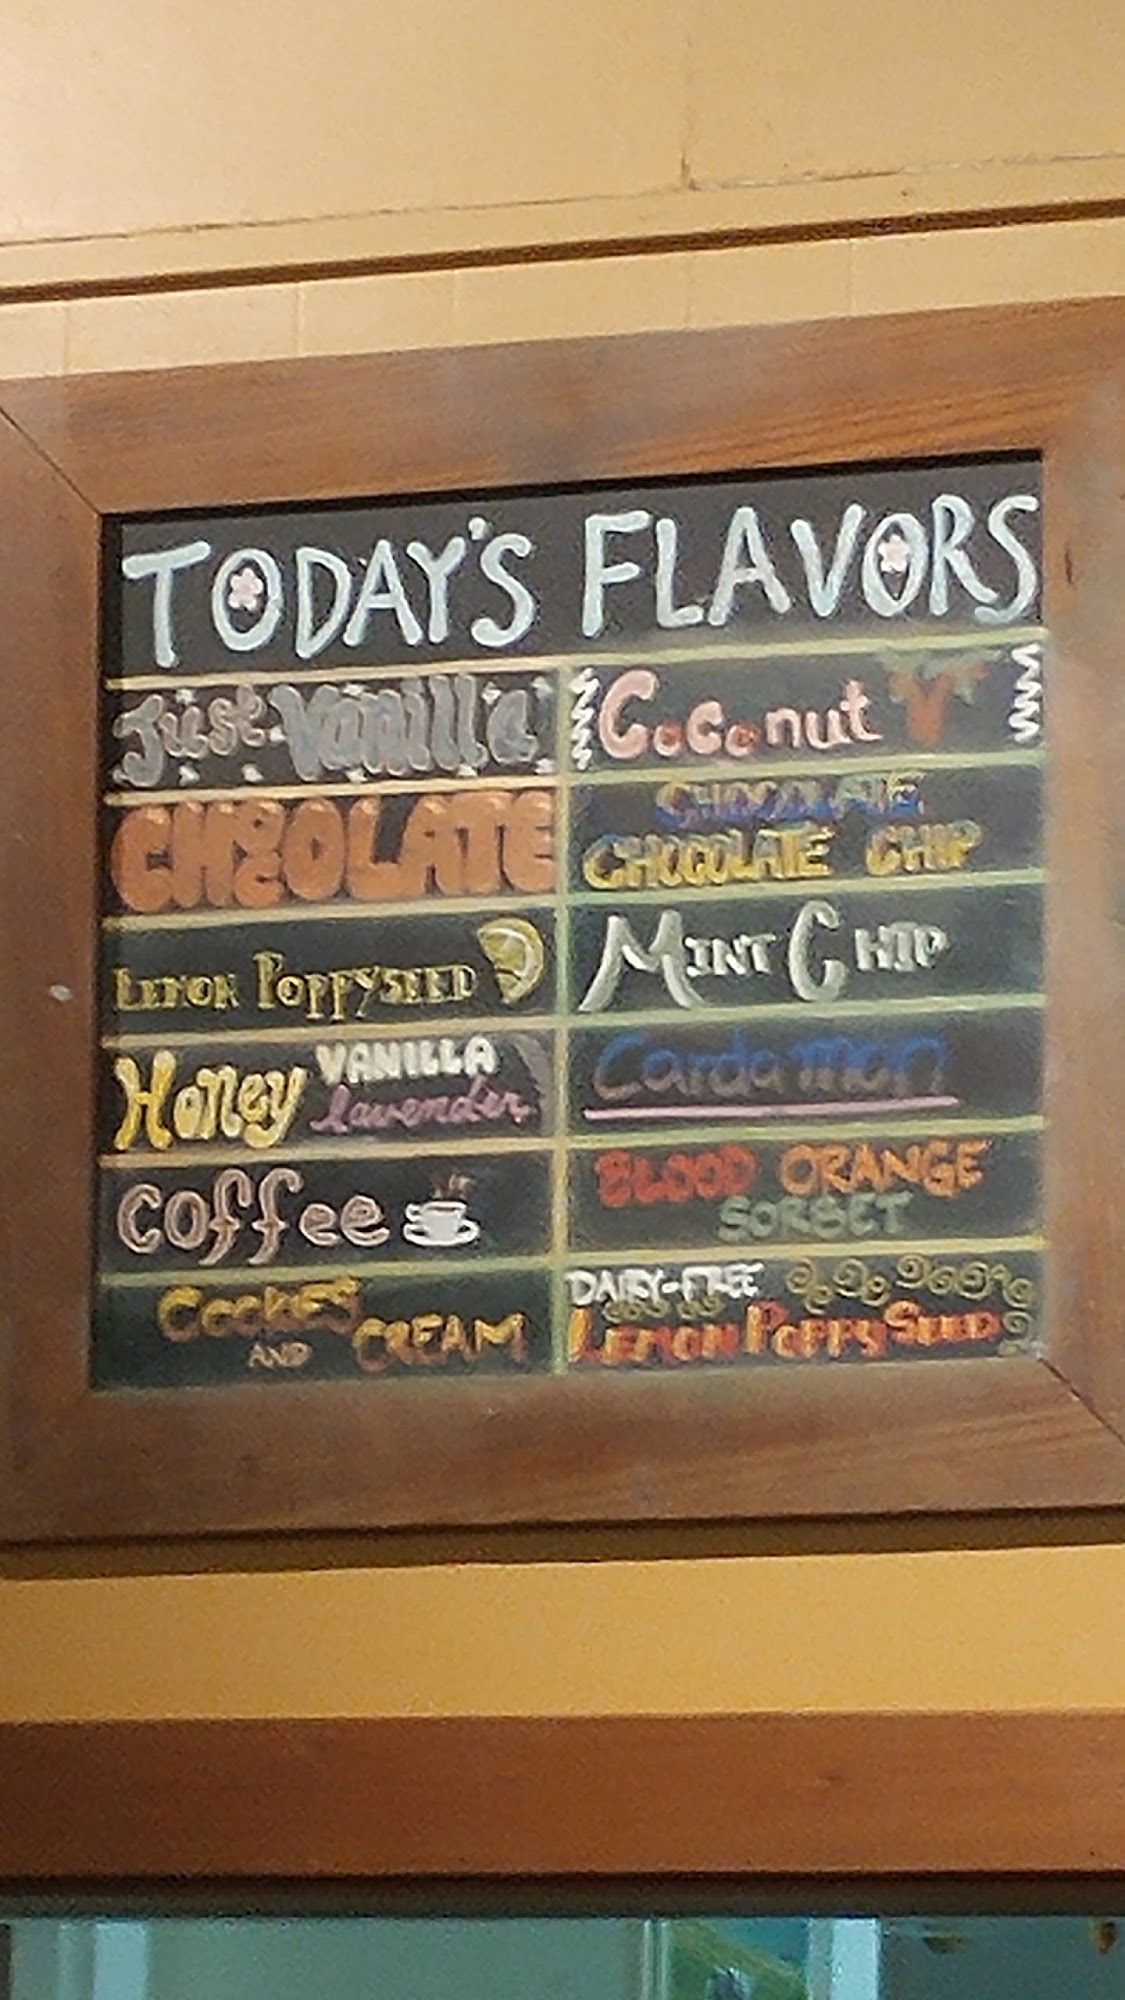 TODAY'S FLAVORS
Just Vanilla
CHOCOLATE
LEMON POPPYSEED
Honey VANILLA
lavender
Coffee
COOKIES
AND CREAM
Coconut V
CHOCOLATE
CHOCOLATE CHIP
MINT CHIP
Cardamon
BLOOD ORANGE
SORBET
DAIRY-FREE
LEMON POPPY SEED